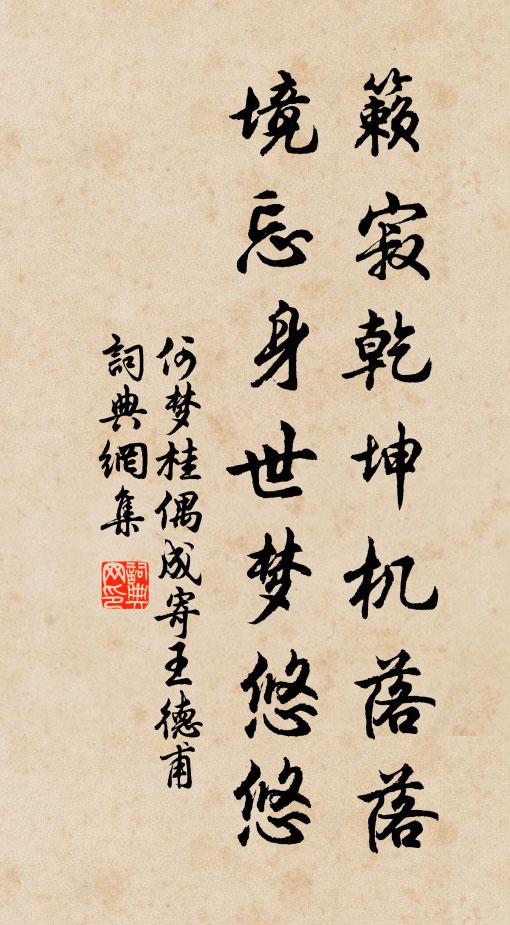 籁寂乾坤机落落
境忘身世梦悠悠
何梦桂偶成寄王德甫
詞典網集
詞典网印